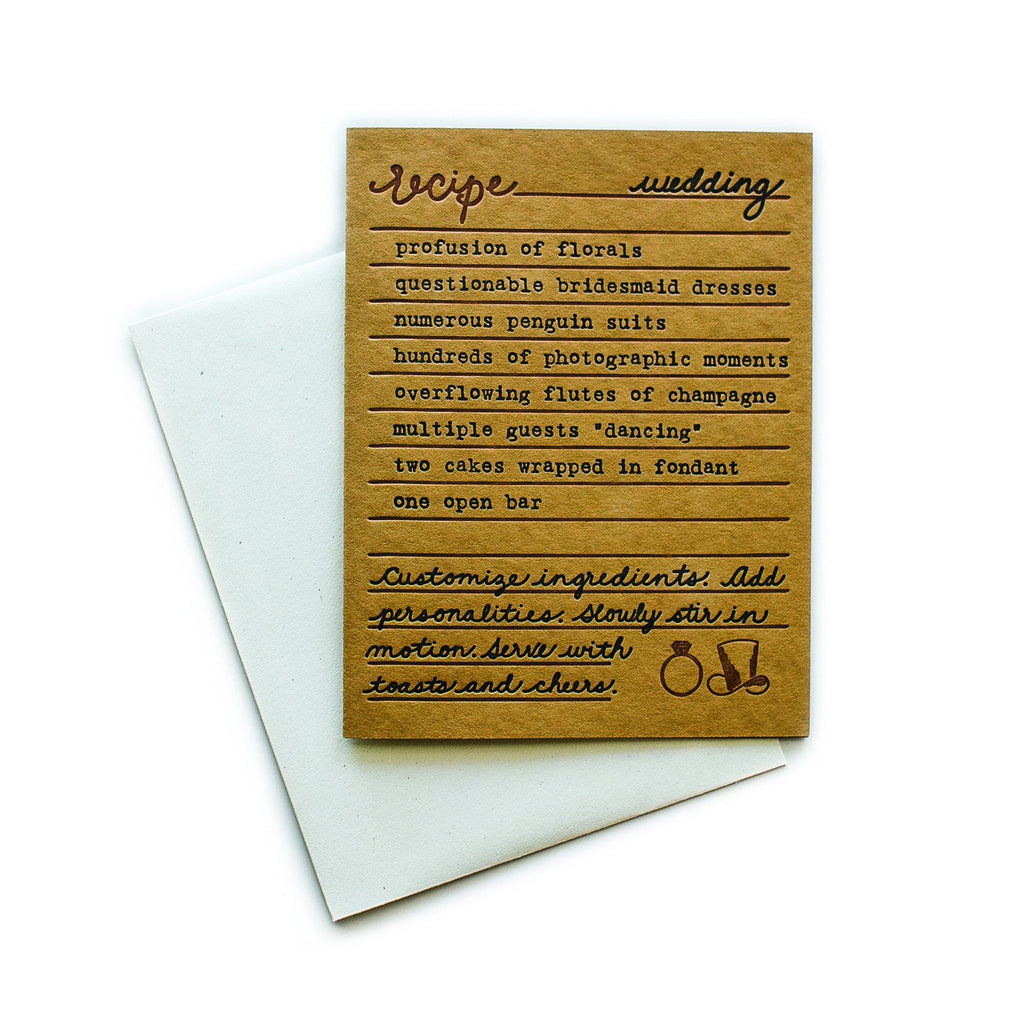 recipe wedding
profusion of florals
questionable bridesmaid dresses
numerous penguin suits
hundreds of photographic moments
overflowing flutes of champagne
multiple guests "dancing"
two cakes wrapped in fondant
one open bar
Customize ingredients. Add
personalities. Slowly stir in
motion. Serve with
toasts and cheers.